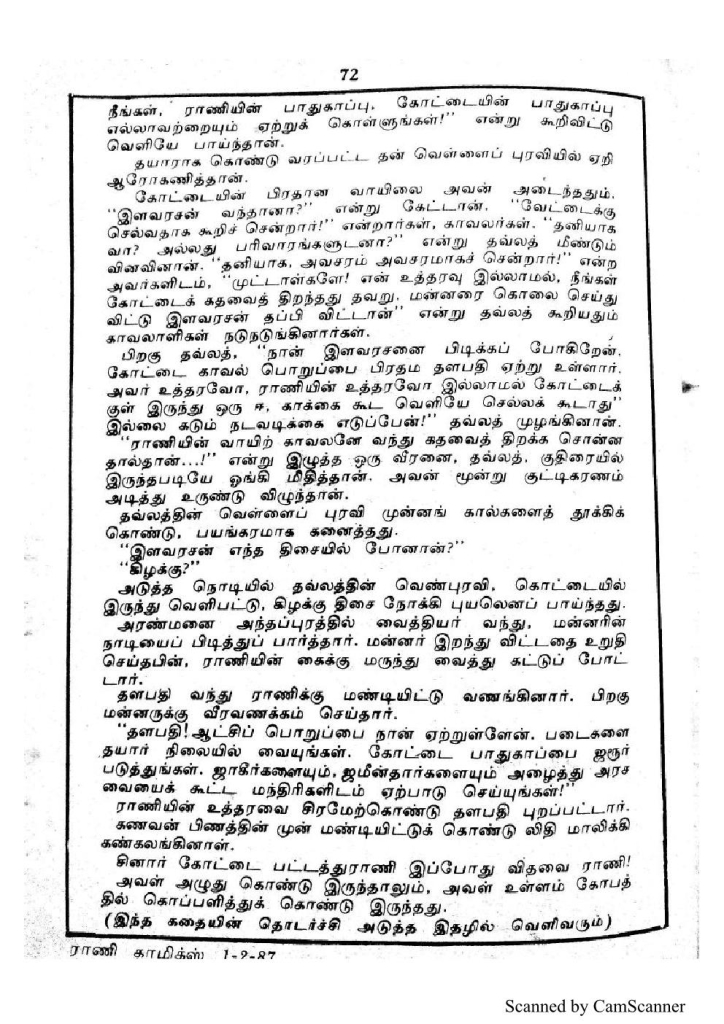 72
நீங்கள், ராணியின் பாதுகாப்பு, கோட்டையின் பாதுகாப்பு
எல்லாவற்றையும் ஏற்றுக் கொள்ளுங்கள்!'' என்று கூறிவிட்டு
வெளியே பாய்ந்தான்.
தயாராக கொண்டு வரப்பட்ட தன் வெள்ளைப் புரவியில் ஏறி
ஆரோகணித்தான்.
கோட்டையின் பிரதான வாயிலை அவன் அடைந்ததும்,
''இளவரசன் வந்தானா?'' என்று கேட்டான். ''வேட்டைக்கு
செல்வதாக கூறிச் சென்றார்!'' என்றார்கள், காவலர்கள். ''தனியாக
வா? அல்லது பரிவாரங்களுடனா?'' என்று தவ்லத் மீண்டும்
வினவினான். ''தனியாக, அவசரம் அவசரமாகச் சென்றார்!'' என்ற
அவர்களிடம், ''முட்டாள்களே! என் உத்தரவு இல்லாமல், நீங்கள்
கோட்டைக் கதவைத் திறந்தது தவறு. மன்னரை கொலை செய்து
விட்டு இளவரசன் தப்பி விட்டான்'' என்று தவ்லத் கூறியதும்
காவலாளிகள் நடுநடுங்கினார்கள்.
பிறகு தவ்லத், ''நான் இளவரசனை பிடிக்கப் போகிறேன்.
கோட்டை காவல் பொறுப்பை பிரதம தளபதி ஏற்று உள்ளார்.
அவர் உத்தரவோ, ராணியின் உத்தரவோ இல்லாமல் கோட்டைக்
குள் இருந்து ஒரு ஈ, காக்கை கூட வெளியே செல்லக் கூடாது''
இல்லை கடும் நடவடிக்கை எடுப்பேன்!'' தவ்லத் முழங்கினான்.
''ராணியின் வாயிற் காவலனே வந்து கதவைத் திறக்க சொன்ன
தால்தான்...!'' என்று இழுத்த ஒரு வீரனை, தவ்லத், குதிரையில்
இருந்தபடியே ஓங்கி மிதித்தான். அவன் மூன்று குட்டிகரணம்
அடித்து உருண்டு விழுந்தான்.
தவ்லத்தின் வெள்ளைப் புரவி முன்னங் கால்களைத் தூக்கிக்
கொண்டு, பயங்கரமாக கனைத்தது.
''இளவரசன் எந்த திசையில் போனான்?''
''கிழக்கு?''
அடுத்த நொடியில் தவ்லத்தின் வெண்புரவி, கொட்டையில்
இருந்து வெளிபட்டு, கிழக்கு திசை நோக்கி புயலெனப் பாய்ந்தது.
அரண்மனை அந்தப்புரத்தில் வைத்தியர் வந்து, மன்னரின்
நாடியைப் பிடித்துப் பார்த்தார். மன்னர் இறந்து விட்டதை உறுதி
செய்தபின், ராணியின் கைக்கு மருந்து வைத்து கட்டுப் போட்
டார்.
தளபதி வந்து ராணிக்கு மண்டியிட்டு வணங்கினார். பிறகு
மன்னருக்கு வீரவணக்கம் செய்தார்.
''தளபதி! ஆட்சிப் பொறுப்பை நான் ஏற்றுள்ளேன். படைகளை
தயார் நிலையில் வையுங்கள். கோட்டை பாதுகாப்பை ஜரூர்
படுத்துங்கள். ஜாகீர்களையும், ஜமீன்தார்களையும் அழைத்து அரச
வையைக் கூட்ட மந்திரிகளிடம் ஏற்பாடு செய்யுங்கள்!''
ராணியின் உத்தரவை சிரமேற்கொண்டு தளபதி புறப்பட்டார்.
கணவன் பிணத்தின் முன் மண்டியிட்டுக் கொண்டு லிதி மாலிக்கி
கண்கலங்கினாள்.
சினார் கோட்டை பட்டத்துராணி இப்போது விதவை ராணி!
அவள் அழுது கொண்டு இருந்தாலும், அவள் உள்ளம் கோபத்
தில் கொப்பளித்துக் கொண்டு இருந்தது.
(இந்த கதையின் தொடர்ச்சி அடுத்த இதழில் வெளிவரும்)
ராணி காமிக்ஸ் 1-2-87
Scanned by CamScanner